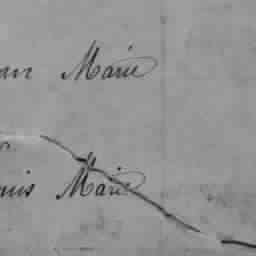 an Marie
uis Marie